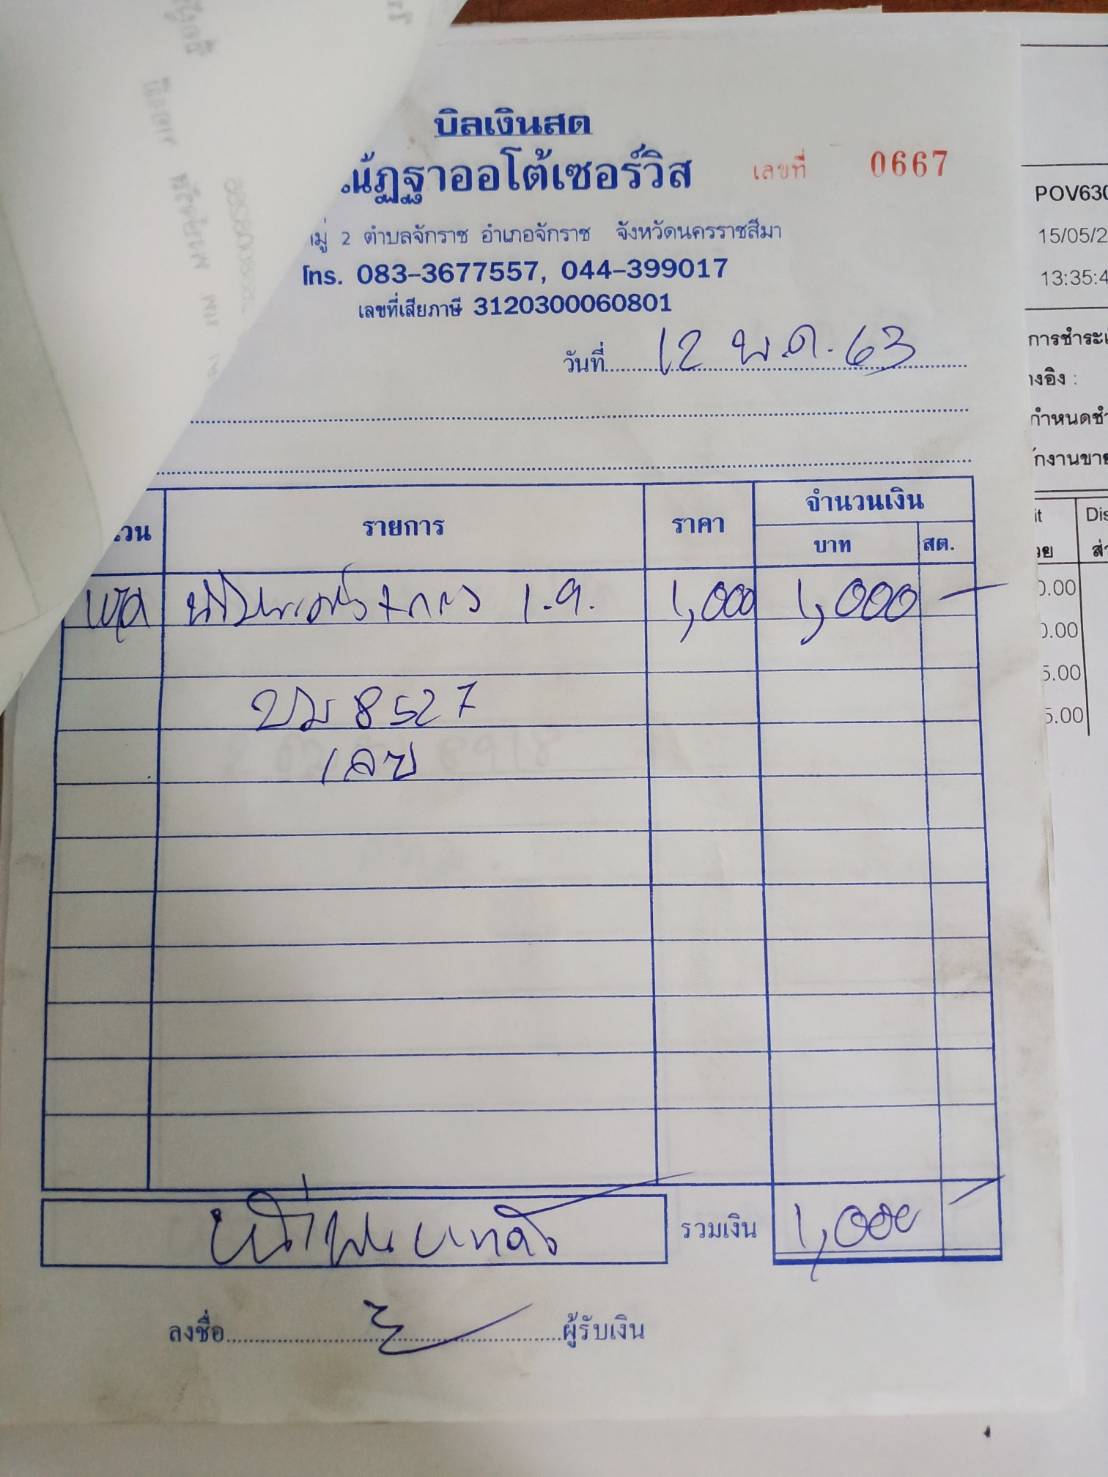 บิลเงินสด
ณัฏฐาออโต้เซอร์วิส เลขที่ 0667
หมู่ 2 ตำบลจักราช อำเภอจักราช จังหวัดนครราชสีมา
โทร. 083-3677557, 044-399017
เลขที่เสียภาษี 3120300060801
วันที่ 12 พ.ค. 63
รายการ ราคา จำนวนเงิน
บาท สต.
1,000 1,000 -
8527
รวมเงิน 1,000 -
หนึ่งพันบาทถ้วน
ลงชื่อ ผู้รับเงิน
POV630
15/05/2
13:35:4
การชำระเ
างอิง :
กำหนดชำ
it Dis
0.00
0.00
5.00
5.00